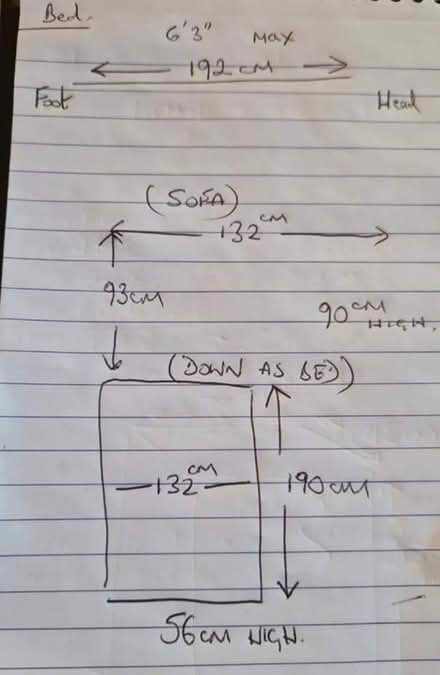 Bed.
6'3" MAX
192 CM
Foot Head
(SOFA)
132 CM
93CM
90 CM HIGH.
(DOWN AS BED)
132 CM
190 CM
56CM HIGH.